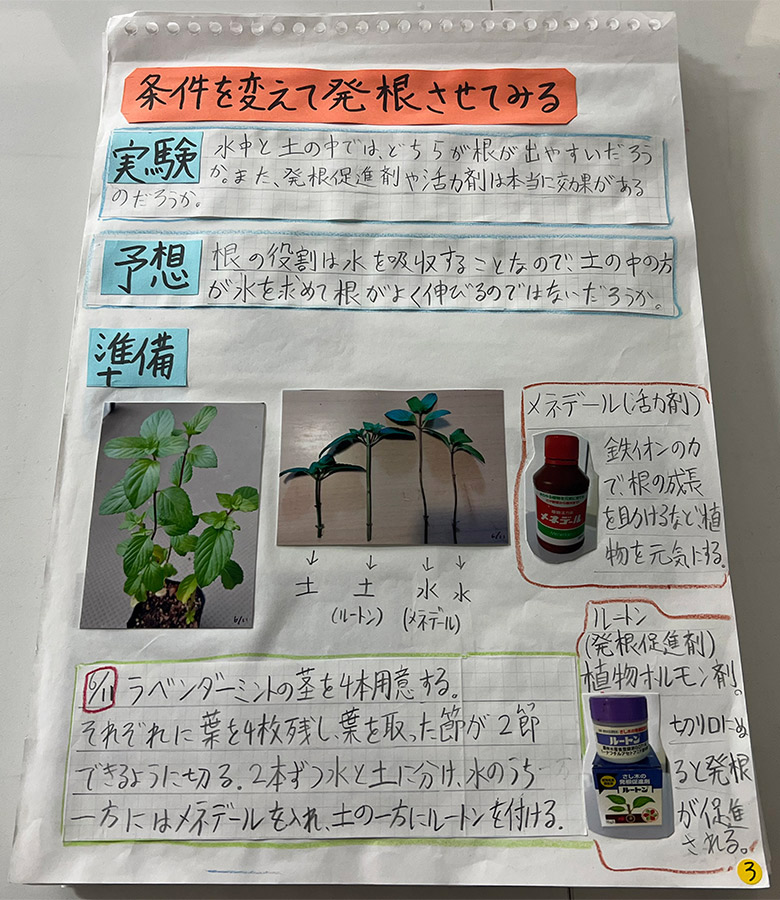 条件を変えて発根させてみる
実験
水中と土の中では、どちらが根が出やすいだろう
か。また、発根促進剤や活力剤は本当に効果がある
のだろうか。
予想
根の役割は水を吸収することなので、土の中の方
が水を求めて根がよく伸びるのではないだろうか。
準備
6/11
6/11
土
土
水
水
(ルートン)
(メネデール)
メネデール(活力剤)
鉄イオンの力
で、根の成長
を助けるなど植
物を元気にする。
メネデール
ルートン
(発根促進剤)
植物ホルモン剤。
切り口にぬ
ると発根
が促進
される。
ルートン
さし木の
発根促進剤
ルートン
6/11 ラベンダーミントの茎を4本用意する。
それぞれに葉を4枚残し、葉を取った節が2節
できるように切る。2本ずつ水と土に分け、水のうち
一方にはメネデールを入れ、土の一方にルートンを付ける。
3